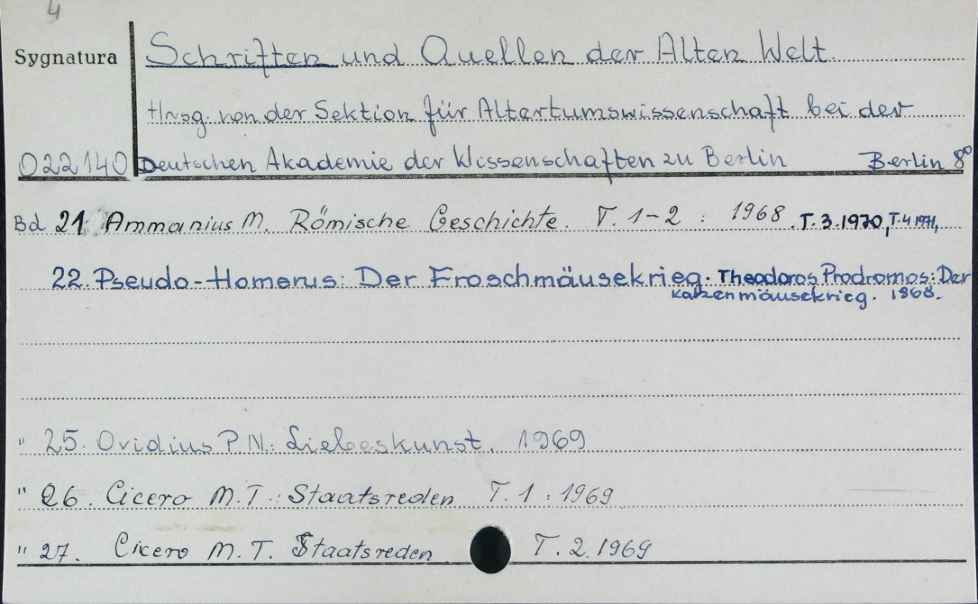 4
Sygnatura
Schriften und Quellen der Alten Welt.
Hrsg. von der Sektion für Altertumswissenschaft bei der
022140 Deutschen Akademie der Wissenschaften zu Berlin Berlin 8°
Bd 21. Ammanius M. Römische Geschichte. T. 1-2 : 1968. T. 3. 1970, T. 4 1971,
22. Pseudo-Homerus: Der Froschmäusekrieg. Theodoros Prodromos: Der
Katzenmäusekrieg. 1968.
" 25. Ovidius P. N.: Liebeskunst. 1969
" 26. Cicero M. T.: Staatsreden T. 1 : 1969
" 27. Cicero M. T. Staatsreden T. 2. 1969